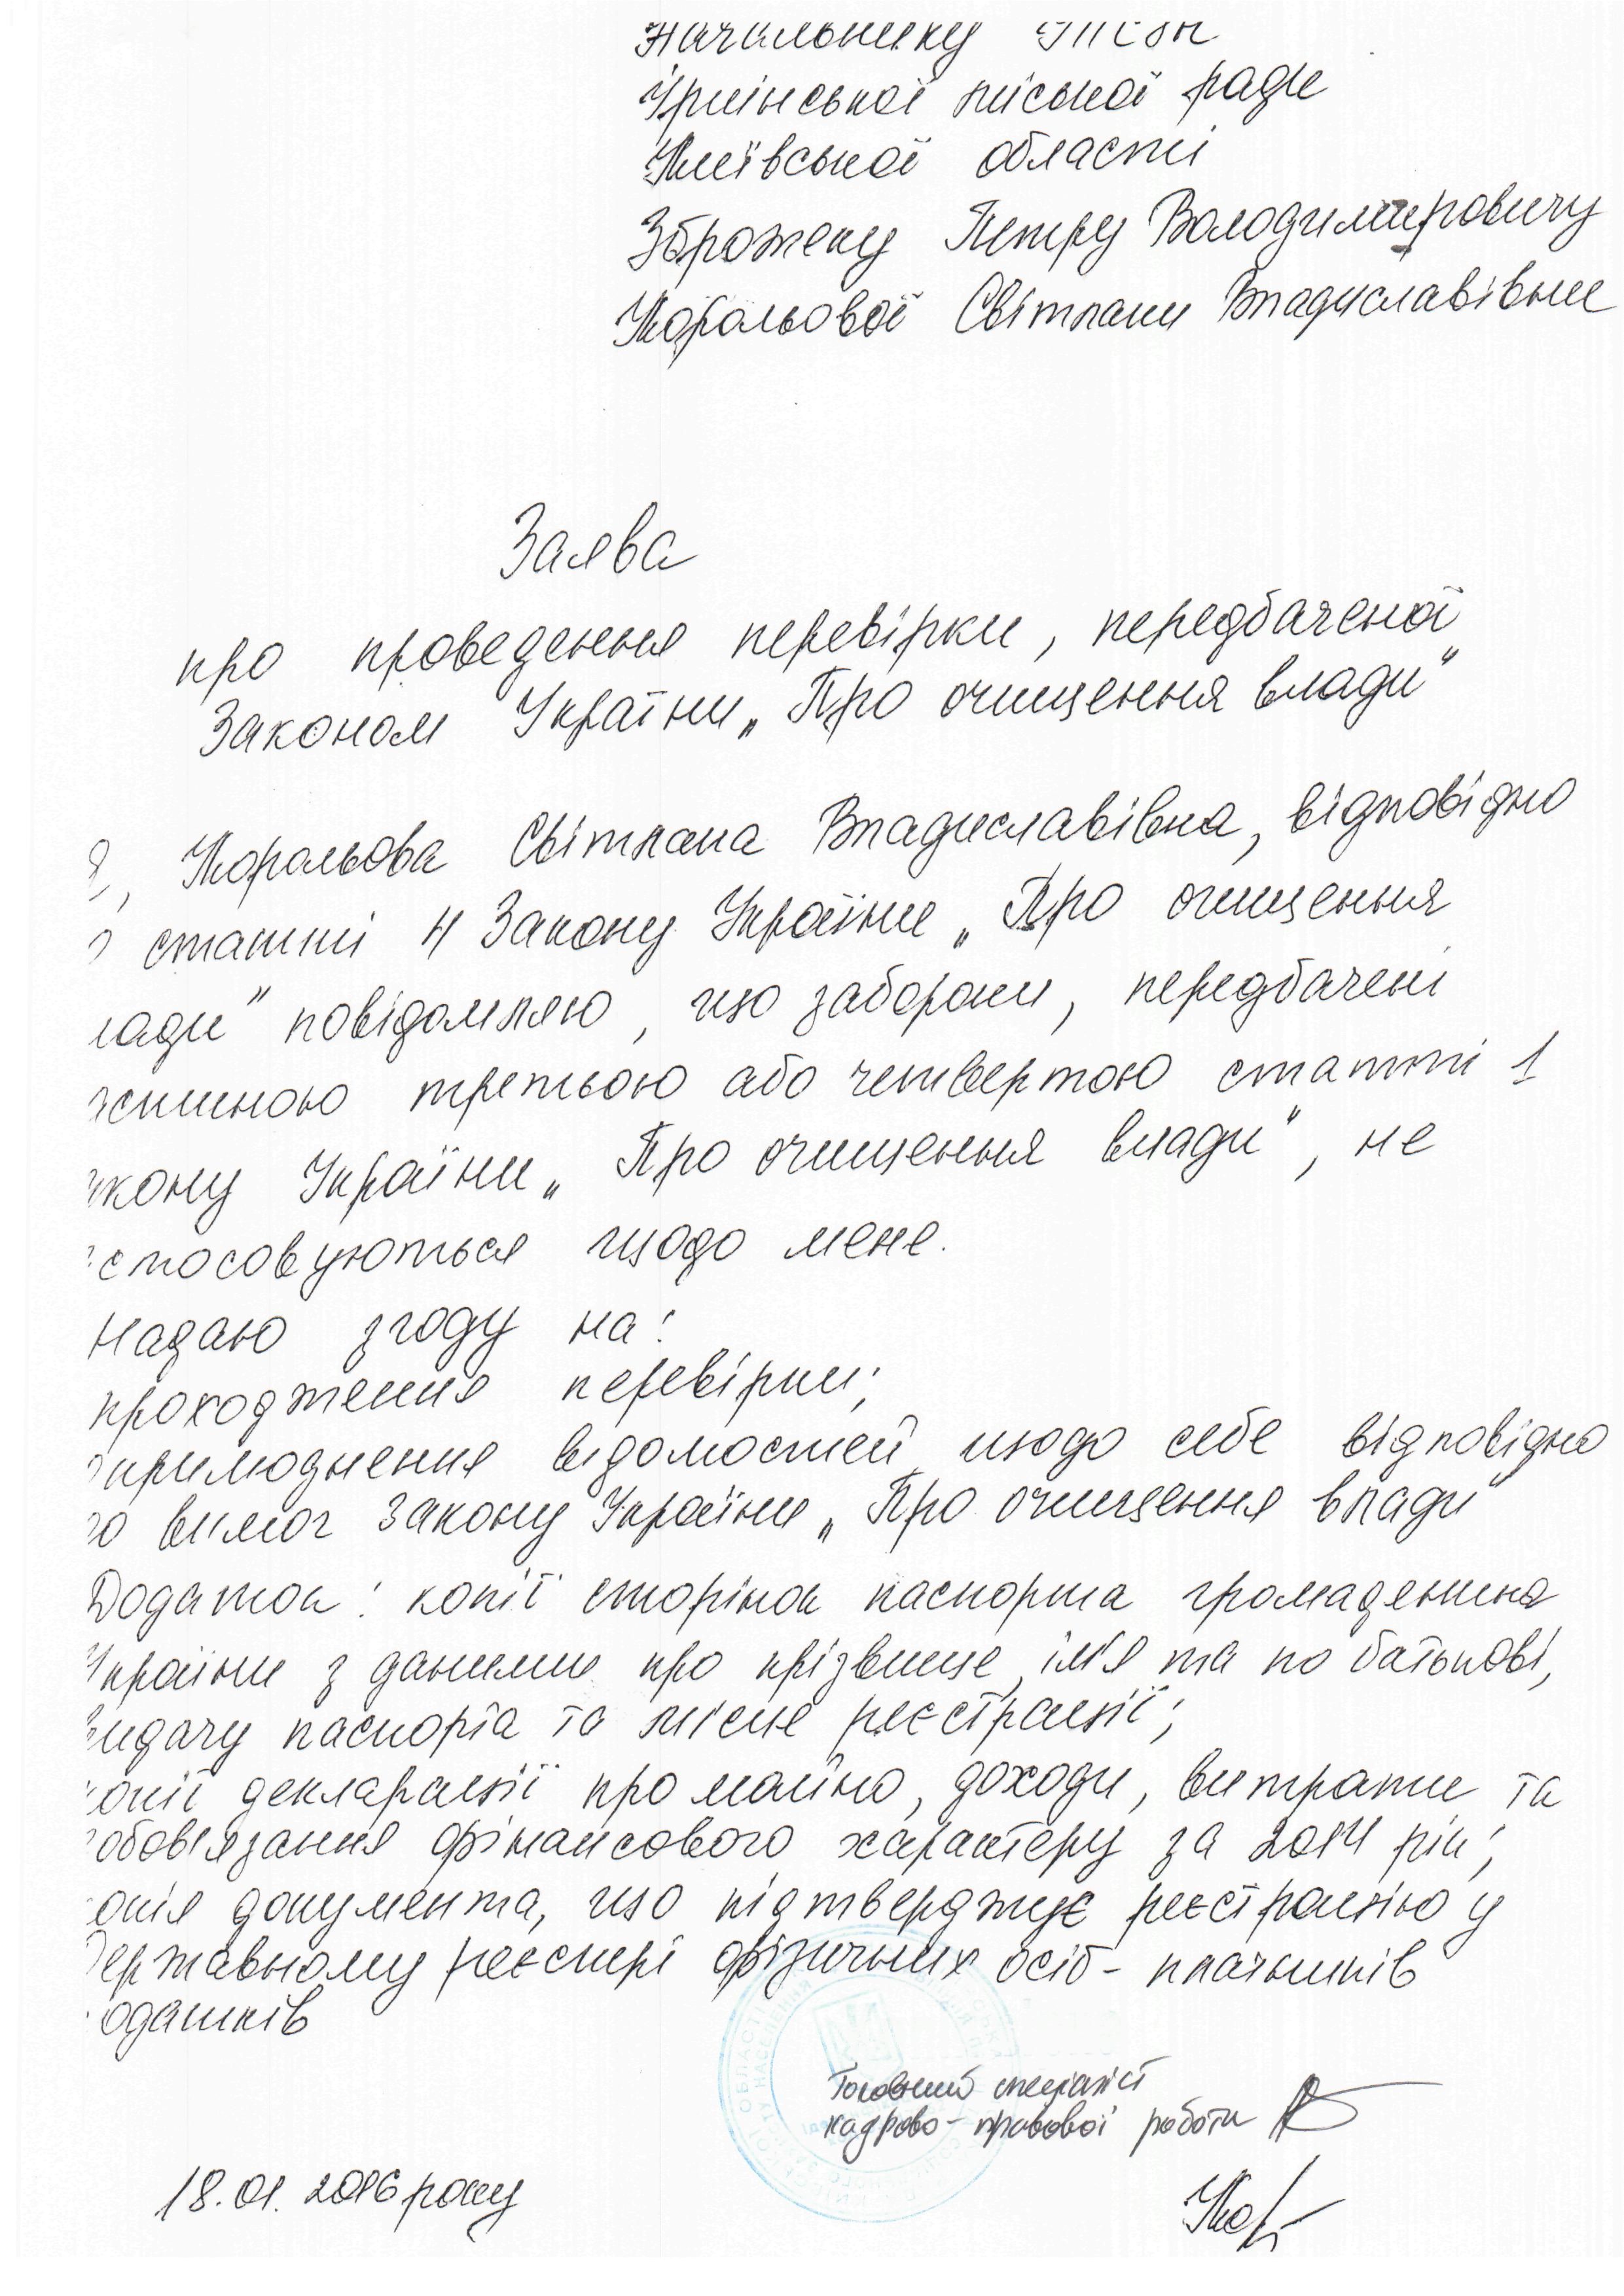 Начальнику УПСЗН
Ірпінської міської ради
Київської області
Зброжеку Петру Володимировичу
Корольової Світлани Владиславівни
Заява
про проведення перевірки, передбаченої
Законом України „Про очищення влади"
Я, Корольова Світлана Владиславівна, відповідно
о статті 4 Закону України „Про очищення
лади" повідомляю, що заборони, передбачені
астиною третьою або четвертою статті 1
акону України „Про очищення влади", не
стосовуються щодо мене.
Надаю згоду на:
проходження перевірки;
оприлюднення відомостей щодо себе відповідно
до вимог Закону України „Про очищення влади"
Додаток: копії сторінок паспорта громадянина
України з даними про прізвище, ім'я та по батькові,
видачу паспорта та місце реєстрації;
копії декларації про майно, доходи, витрати та
зобов'язання фінансового характеру за 2014 рік;
копія документа, що підтверджує реєстрацію у
Державному реєстрі фізичних осіб - платників
одатків
Головний спеціаліст
кадрово - правової роботи
18.01.2016 року